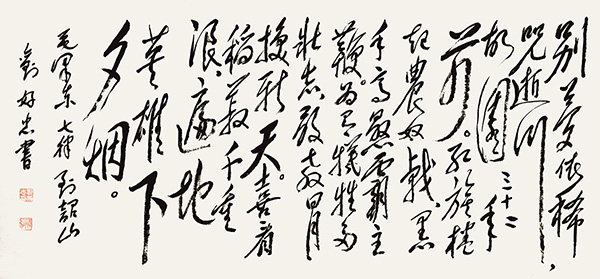 别梦依稀，
咒逝川
故園三十二年
前。红旗捲
起農奴戟，黑
手高悬霸主
鞭。为有犧牲多
壮志，敢教日月
换新天。喜看
稻菽千重
浪，遍地
英雄下
夕烟。
毛泽东七律 到韶山
劉好忠書